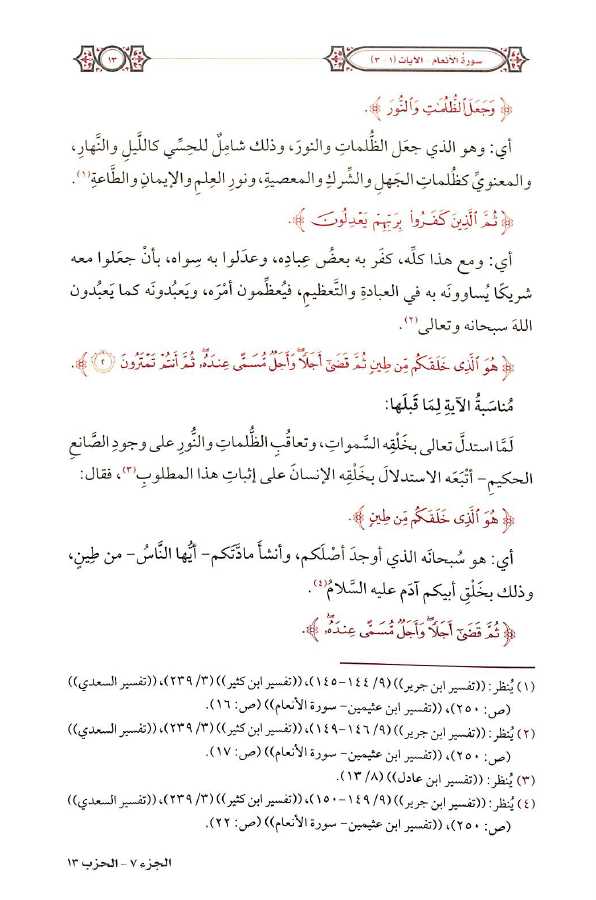 سورة الأنعام - الآيات (١-٣)
١٣
﴿ وَجَعَلَ ٱلظُّلُمَٰتِ وَٱلنُّورَ ﴾.
أي: وهو الذي جعَل الظُّلماتِ والنورَ، وذلك شاملٌ للحِسِّي كاللَّيلِ والنَّهارِ،
والمعنويِّ كظُلماتِ الجَهلِ والشِّركِ والمعصيةِ، ونورِ العِلمِ والإيمانِ والطَّاعةِ(١).
﴿ ثُمَّ ٱلَّذِينَ كَفَرُوا۟ بِرَبِّهِمْ يَعْدِلُونَ ﴾.
أي: ومع هذا كلِّه، كفَر به بعضُ عِبادِه، وعدَلوا به سِواه، بأنْ جعَلوا معه
شريكًا يُساوونَه به في العبادةِ والتَّعظيمِ، فيُعظِّمون أمْرَه، ويَعبُدونَه كما يَعبُدون
اللهَ سبحانه وتعالى(٢).
﴿ هُوَ ٱلَّذِى خَلَقَكُم مِّن طِينٍ ثُمَّ قَضَىٰٓ أَجَلًا ۖ وَأَجَلٌ مُّسَمًّى عِندَهُۥ ۖ ثُمَّ أَنتُمْ تَمْتَرُونَ ٢ ﴾.
مُناسَبةُ الآيةِ لِمَا قَبلَها:
لَمَّا استدلَّ تعالى بخَلْقِه السَّمواتِ، وتعاقُبِ الظُّلماتِ والنُّورِ على وجودِ الصَّانعِ
الحكيمِ- أتْبَعَه الاستدلالَ بخَلْقِه الإنسانَ على إثباتِ هذا المطلوبِ(٣)، فقال:
﴿ هُوَ ٱلَّذِى خَلَقَكُم مِّن طِينٍ ﴾.
أي: هو سُبحانَه الذي أوجدَ أصْلَكم، وأنشأ مادَّتَكم- أيُّها النَّاسُ- من طِينٍ،
وذلك بخَلْقِ أبيكم آدَمَ عليه السَّلامُ(٤).
﴿ ثُمَّ قَضَىٰٓ أَجَلًا ۖ وَأَجَلٌ مُّسَمًّى عِندَهُۥ ۖ ﴾.
(١) يُنظر: ((تفسير ابن جرير)) (٩/ ١٤٤-١٤٥)، ((تفسير ابن كثير)) (٣/ ٢٣٩)، ((تفسير السعدي))
(ص: ٢٥٠)، ((تفسير ابن عثيمين- سورة الأنعام)) (ص: ١٦).
(٢) يُنظر: ((تفسير ابن جرير)) (٩/ ١٤٦-١٤٩)، ((تفسير ابن كثير)) (٣/ ٢٣٩)، ((تفسير السعدي))
(ص: ٢٥٠)، ((تفسير ابن عثيمين- سورة الأنعام)) (ص: ١٧).
(٣) يُنظر: ((تفسير ابن عادل)) (٨/ ١٣).
(٤) يُنظر: ((تفسير ابن جرير)) (٩/ ١٤٩-١٥٠)، ((تفسير ابن كثير)) (٣/ ٢٣٩)، ((تفسير السعدي))
(ص: ٢٥٠)، ((تفسير ابن عثيمين- سورة الأنعام)) (ص: ٢٢).
الجزء ٧ - الحزب ١٣